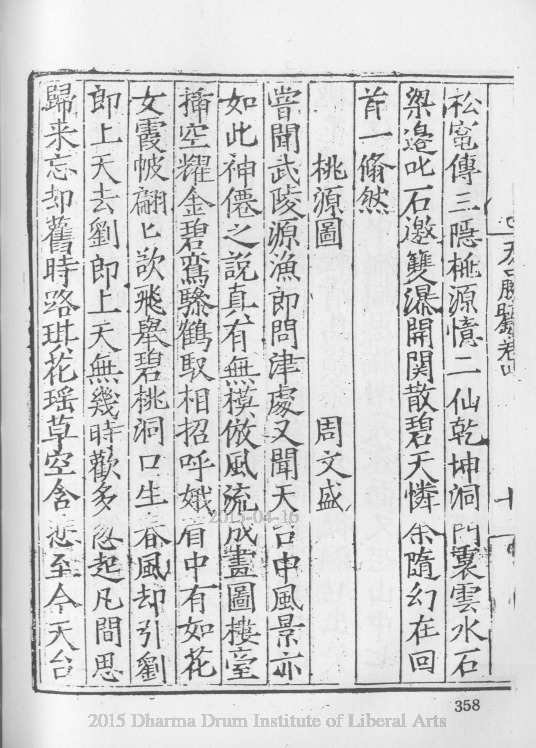 松竈傳三隱桃源憶二仙乾坤洞門裏雲水石
梁邉叱石邀雙瀑開関散碧天憐余隨幻在回
首一翛然
桃源圖 周文盛
嘗聞武陵源漁郎問津處又聞天台中風景亦
如此神僊之說真有無模倣風流成畫圖樓臺
插空耀金碧鸞驂鶴馭相招呼娥眉中有如花
女霞帔翩匕欲飛舉碧桃洞口生春風却引劉
郎上天去劉郎上天無幾時歡多忽起凡間思
歸来忘却舊時路琪花瑶草空含悲至今天台
天台勝蹟卷四
十
2015-04-16
358
2015 Dharma Drum Institute of Liberal Arts